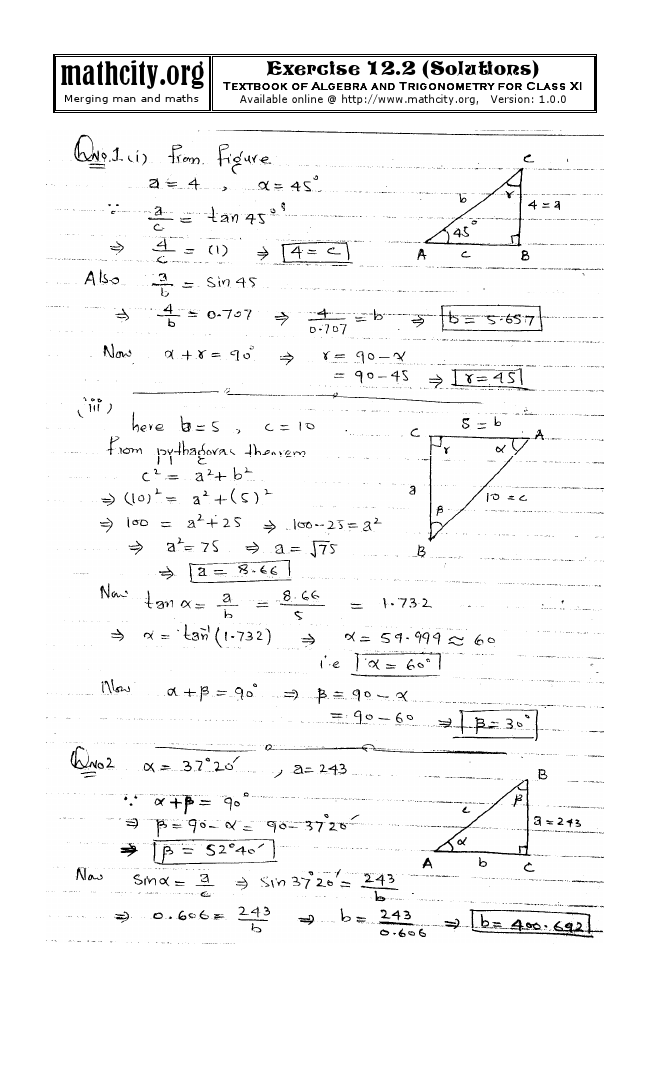 mathcity.org
Merging man and maths
Exercise 12.2 (Solutions)
TEXTBOOK OF ALGEBRA AND TRIGONOMETRY FOR CLASS XI
Available online @ http://www.mathcity.org, Version: 1.0.0
QNo.1 (i) From Figure
a = 4 , α = 45°
∵ a/c = tan 45°
⇒ 4/c = (1) ⇒ 4 = c
C
b
γ
4 = a
45°
A c B
Also a/b = Sin 45
⇒ 4/b = 0.707 ⇒ 4/0.707 = b ⇒ b = 5.657
Now α + γ = 90° ⇒ γ = 90 - α
= 90 - 45 ⇒ γ = 45
(iii)
here b = 5 , c = 10
From pythagoras theorem
c² = a² + b²
⇒ (10)² = a² + (5)²
⇒ 100 = a² + 25 ⇒ 100 - 25 = a²
⇒ a² = 75 ⇒ a = √75
⇒ a = 8.66
5 = b
C A
γ α
a
10 = c
β
B
Now tan α = a/b = 8.66/5 = 1.732
⇒ α = tan⁻¹(1.732) ⇒ α = 59.999 ≈ 60
i.e α = 60°
Now α + β = 90° ⇒ β = 90 - α
= 90 - 60 ⇒ β = 30°
QNo2 α = 37°20′ , a = 243
∵ α + β = 90°
⇒ β = 90 - α = 90 - 37°20′
⇒ β = 52°40′
B
β
c
a = 243
α
A b C
Now Sin α = a/c ⇒ Sin 37°20′ = 243/b
⇒ 0.606 = 243/b ⇒ b = 243/0.606 ⇒ b = 400.692